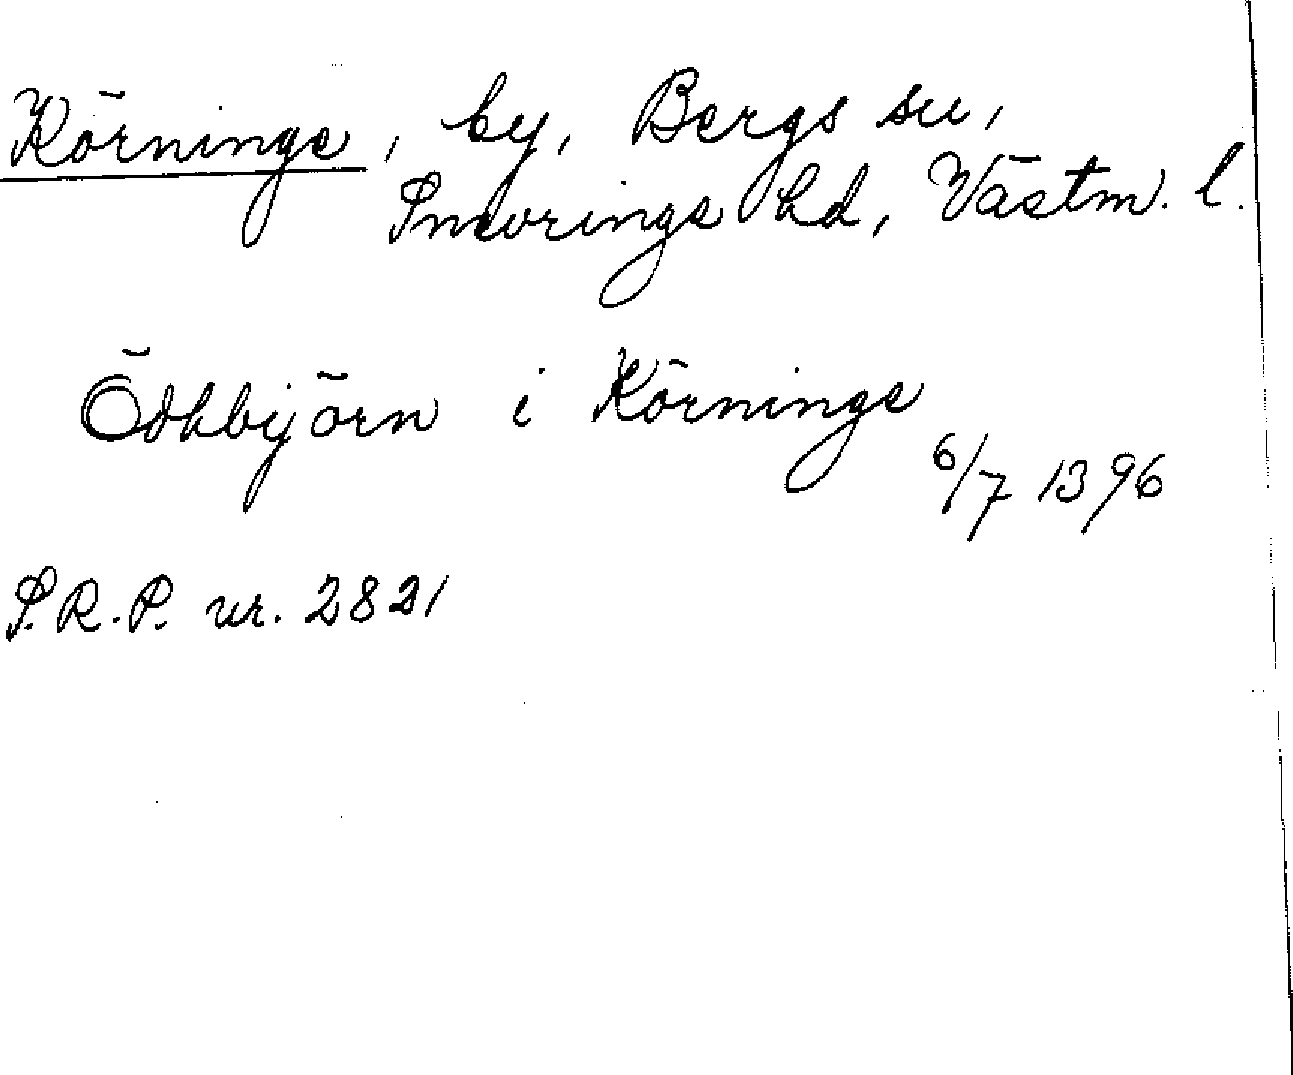 Körninge, by, Bergs sn,
Snevringe hd, Västm. l.
Ödhbijörn i Körninge
6/7 1396
S.R.P. nr. 2821